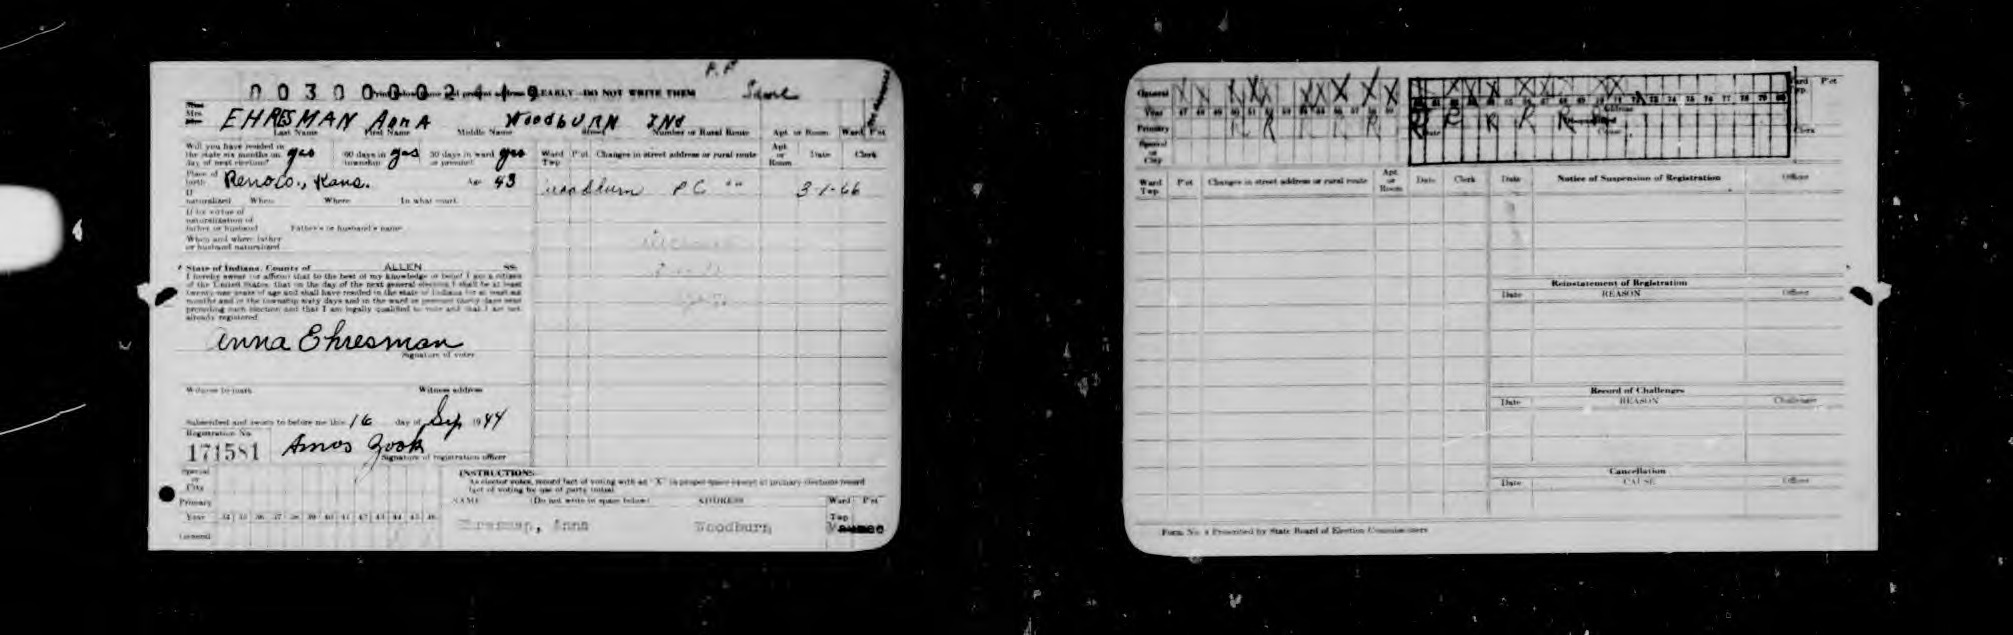 P.P
00300002419 EARLY—DO NOT WRITE THEM Same
Mrs.
EHRESMAN Anna Woodburn Ind
Last Name First Name Middle Name Street Number or Rural Route Apt. or Room Ward P'ct
Will you have resided in
the state six months on yes 60 days in yes 30 days in ward yes
day of next election? township or precinct?
Ward Twp. P'ct Changes in street address or rural route Apt. or Room Date Clerk
Place of birth Reno Co., Kans. Age 43
Woodburn P.C. "" 3-1-66
If naturalized When Where In what court
If by virtue of
naturalization of
father or husband Father's or husband's name
When and where father
or husband naturalized
State of Indiana, County of ALLEN SS.
I hereby swear (or affirm) that to the best of my knowledge or belief I am a citizen
of the United States; that on the day of the next general election I shall be at least
twenty-one years of age and shall have resided in the state of Indiana for at least six
months and in the township sixty days and in the ward or precinct thirty days next
preceding such election and that I am legally qualified to vote and that I am not
already registered.
Anna Ehresman
Signature of voter
Witness to mark Witness address
Subscribed and sworn to before me this 16 day of Sep 1944
Registration No.
171581 Amos Zook
Signature of registration officer
Special or City
Primary
Year 34 35 36 37 38 39 40 41 42 43 44 45 46
General
INSTRUCTIONS
As elector votes, record fact of voting with an "X" in proper space except at primary elections record
fact of voting by use of party initial.
NAME (Do not write in space below) ADDRESS Ward P'ct
Twp
Ehresman, Anna Woodburn Maumee
General X X X X X X X X X X
Year 47 48 49 50 51 52 53 54 55 56 57 58 59
Primary R R R R R
Special or City
Ward Twp. P'ct
Clerk
Ward Twp. P'ct Changes in street address or rural route Apt. or Room Date Clerk Date Notice of Suspension of Registration Officer
Reinstatement of Registration
Date REASON Officer
Record of Challenges
Date REASON Challenger
Cancellation
Date CAUSE Officer
Form No. 4 Prescribed by State Board of Election Commissioners